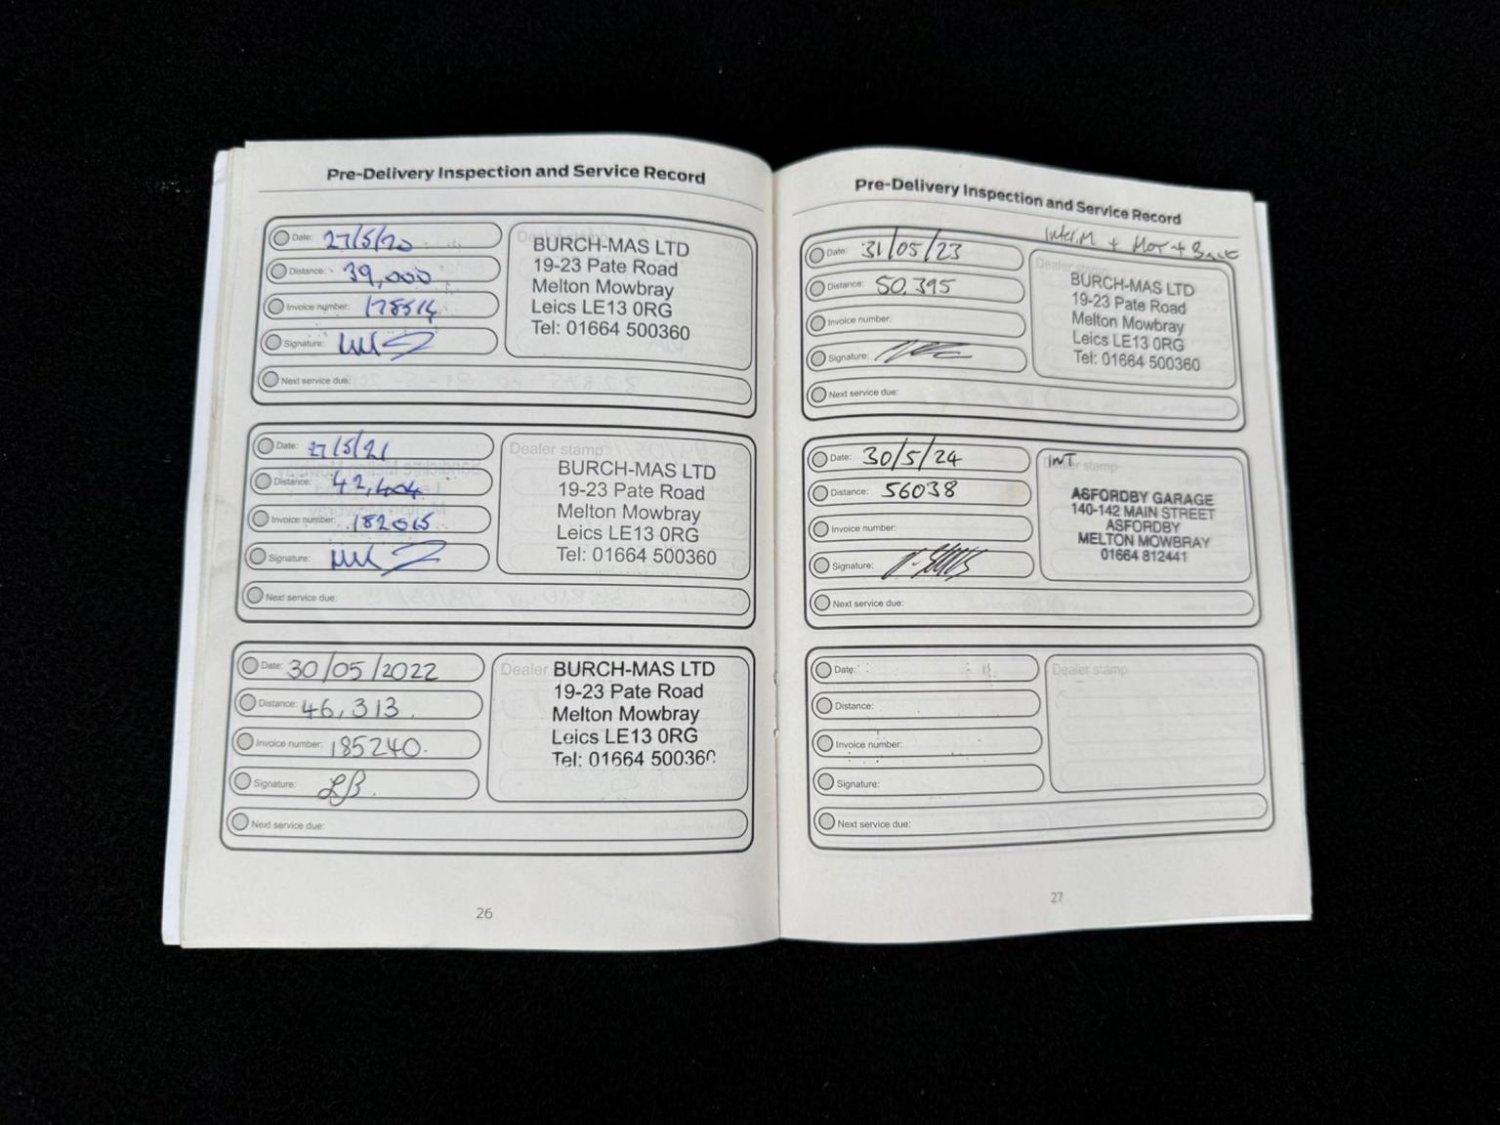 Pre-Delivery Inspection and Service Record
Date: 27/5/20
Distance: 39,000
Invoice number: 178514
Signature:
Next service due:
BURCH-MAS LTD
19-23 Pate Road
Melton Mowbray
Leics LE13 0RG
Tel: 01664 500360
Date: 27/5/21
Distance: 42,404
Invoice number: 182065
Signature:
Next service due:
Dealer stamp
BURCH-MAS LTD
19-23 Pate Road
Melton Mowbray
Leics LE13 0RG
Tel: 01664 500360
Date: 30/05/2022
Distance: 46,313.
Invoice number: 185240.
Signature: LB.
Next service due:
Dealer BURCH-MAS LTD
19-23 Pate Road
Melton Mowbray
Leics LE13 0RG
Tel: 01664 500360
26
Pre-Delivery Inspection and Service Record
Date: 31/05/23
Distance: 50,395
Invoice number:
Signature:
Next service due:
Interim + MOT +
Dealer stamp
BURCH-MAS LTD
19-23 Pate Road
Melton Mowbray
Leics LE13 0RG
Tel: 01664 500360
Date: 30/5/24
Distance: 56038
Invoice number:
Signature:
Next service due:
INT stamp
ASFORDBY GARAGE
140-142 MAIN STREET
ASFORDBY
MELTON MOWBRAY
01664 812441
Date:
Distance:
Invoice number:
Signature:
Next service due:
Dealer stamp
27